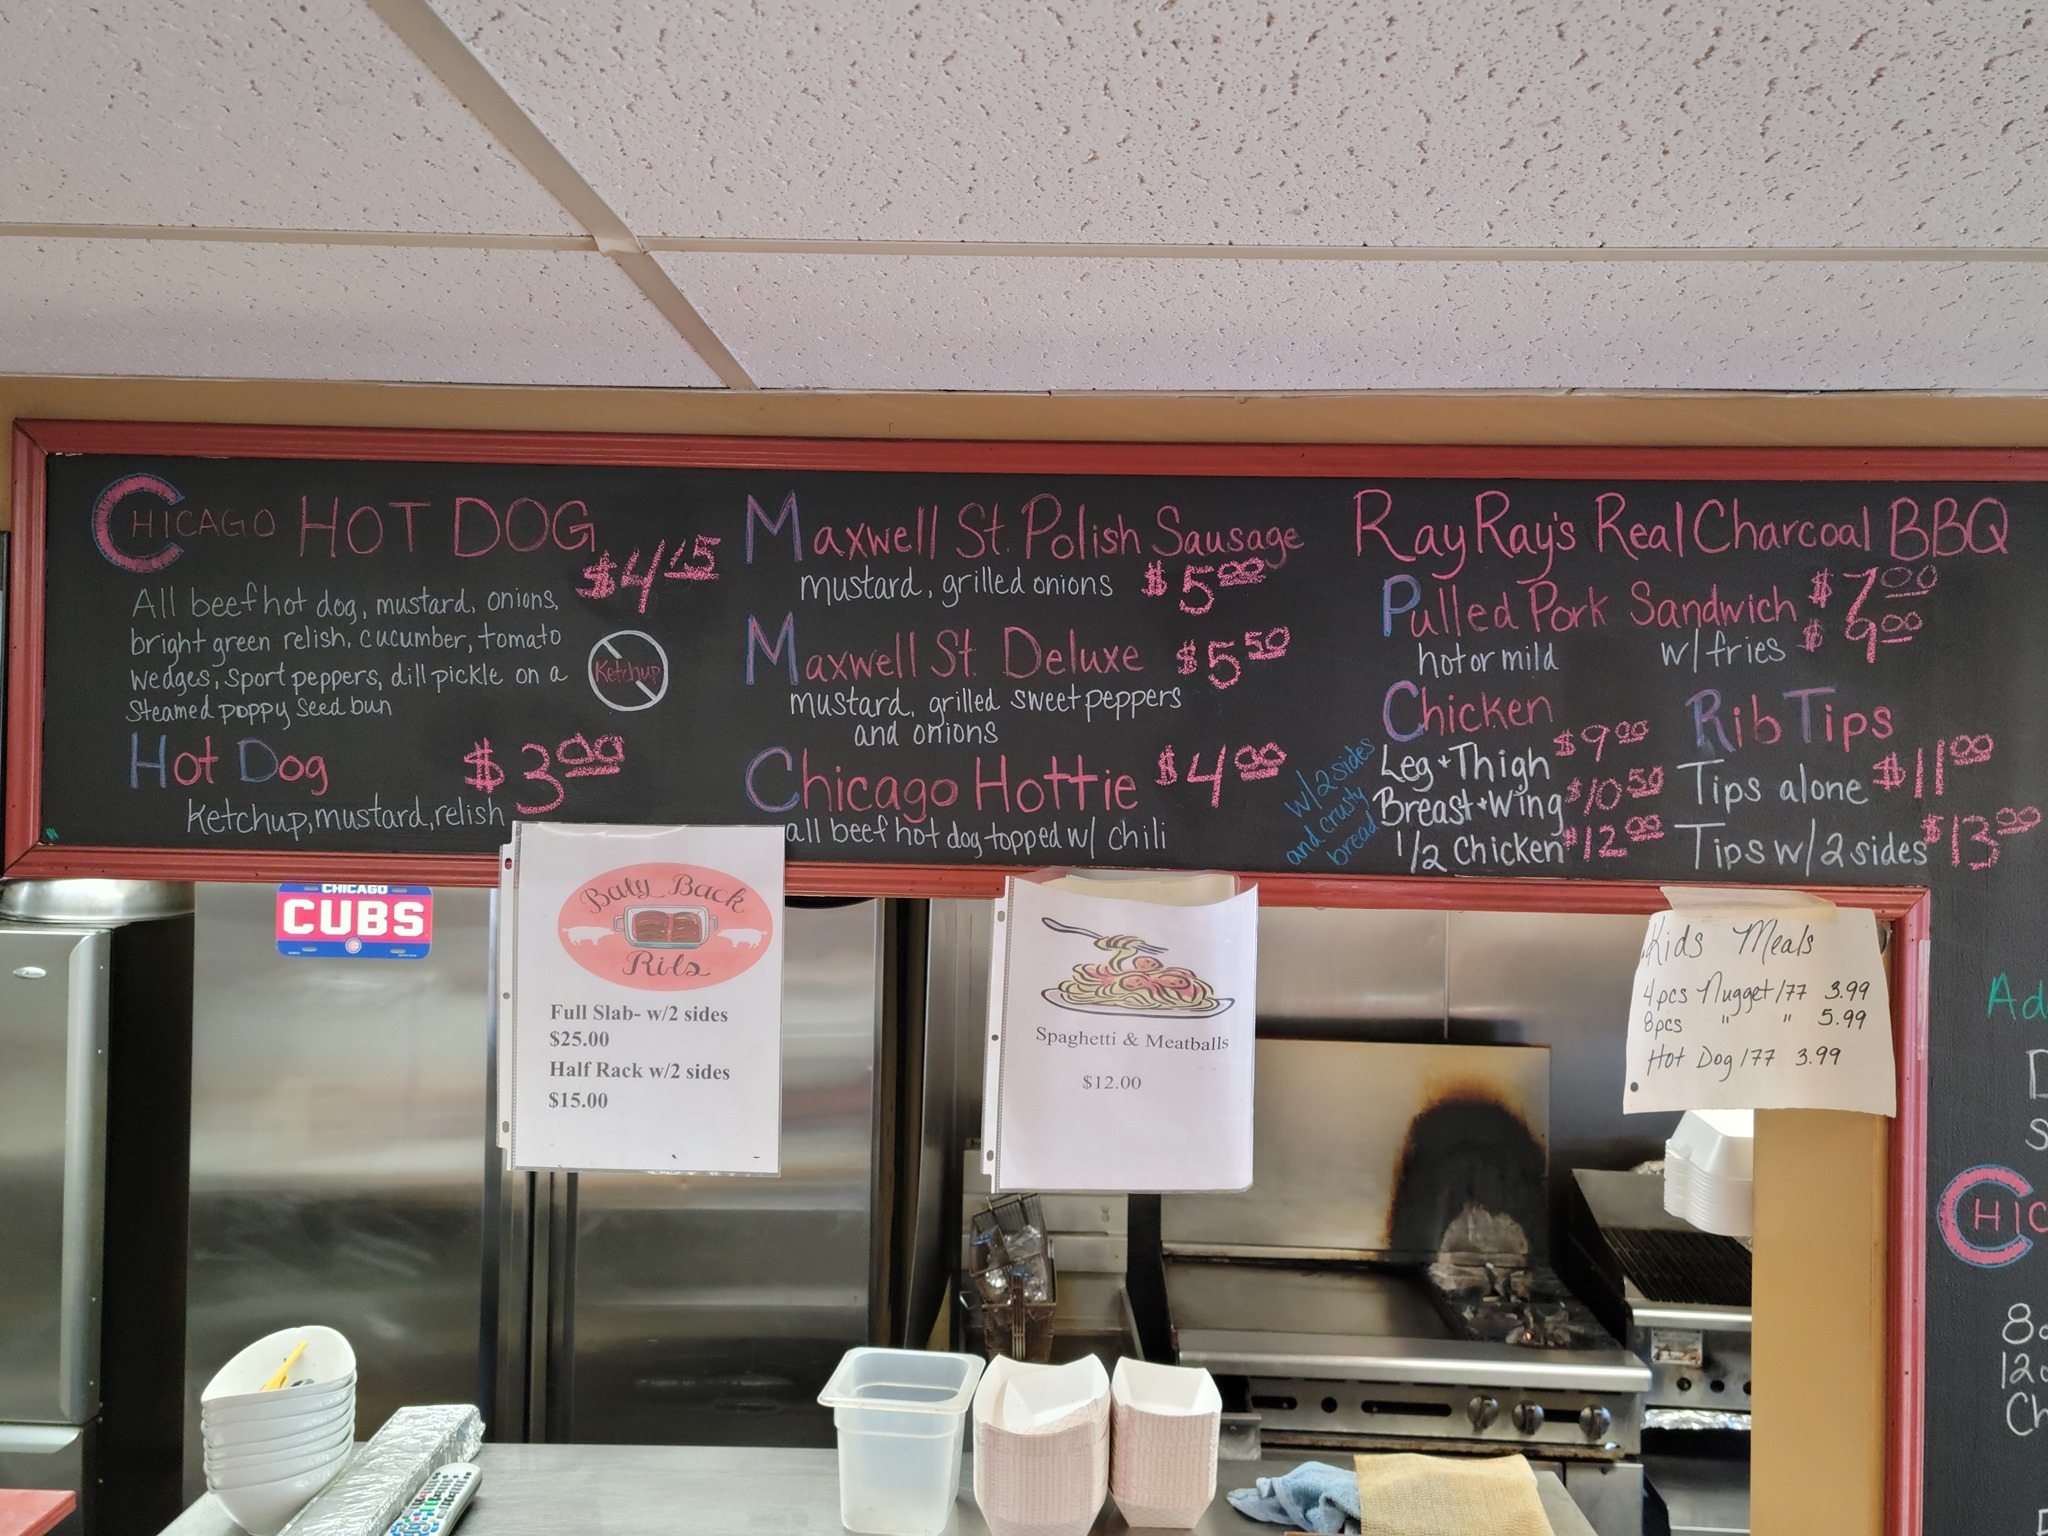 CHICAGO HOT DOG
All beef hot dog, mustard, onions,
bright green relish, cucumber, tomato
wedges, sport peppers, dill pickle on a
steamed poppy seed bun
Ketchup
Hot Dog $3.00
Ketchup, mustard, relish
Maxwell St. Polish Sausage
mustard, grilled onions $5.00
Maxwell St. Deluxe $5.50
mustard, grilled sweet peppers
and onions
Chicago Hottie $4.00
all beef hot dog topped w/ chili
Ray Ray's Real Charcoal BBQ
Pulled Pork Sandwich $7.00
hot or mild w/ fries $9.00
Chicken
w/2 sides
and crusty
bread
Leg + Thigh $9.00
Breast + Wing $10.50
1/2 Chicken $12.00
Rib Tips
Tips alone $11.00
Tips w/ 2 sides $13.00
CHICAGO
CUBS
Baby Back
Ribs
Full Slab- w/2 sides
$25.00
Half Rack w/2 sides
$15.00
Spaghetti & Meatballs
$12.00
Kids Meals
4pcs Nugget/77 3.99
8pcs " " 5.99
Hot Dog/77 3.99
Ad
CHIC
8o
12o
Ch